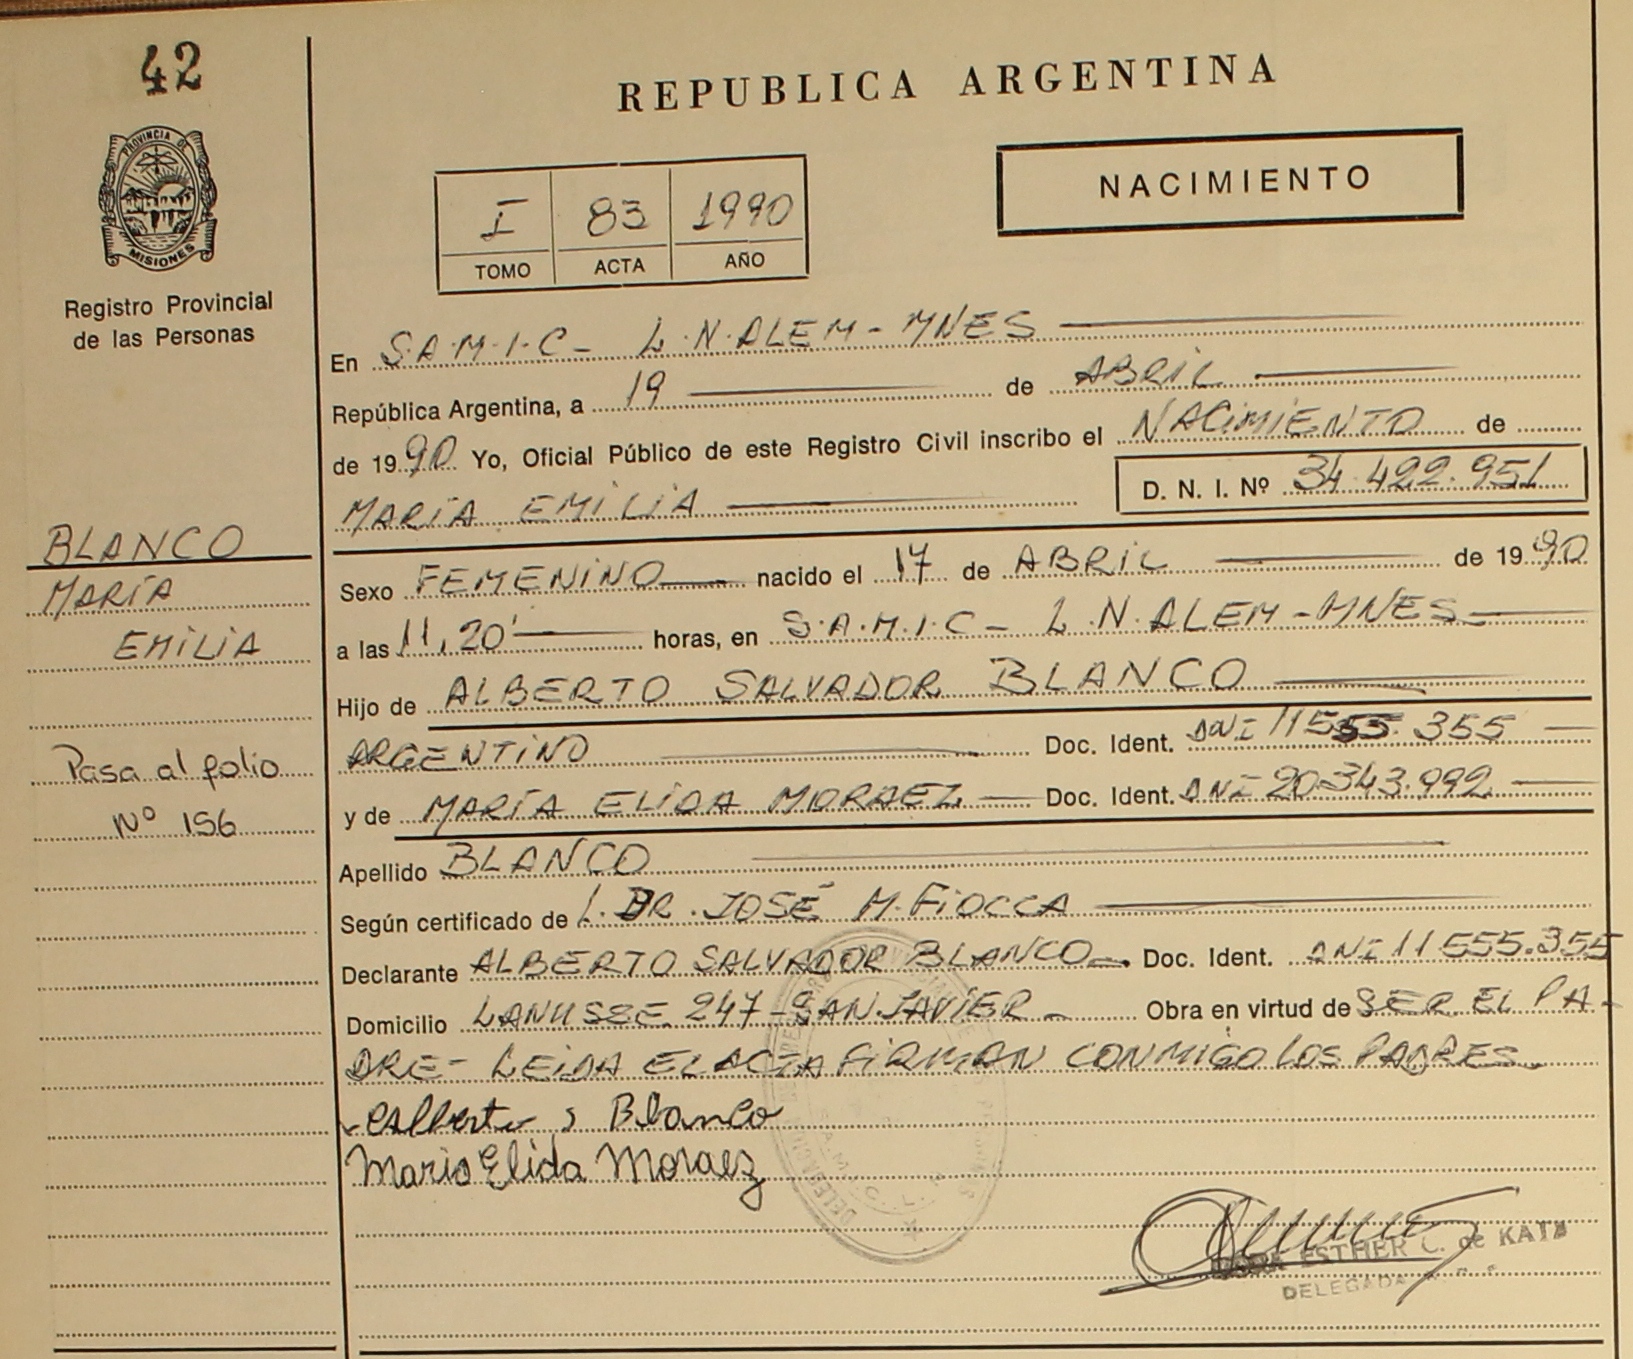 42
REPUBLICA ARGENTINA
PROVINCIA DE
MISIONES
Registro Provincial
de las Personas
I 83 1990
TOMO ACTA AÑO
NACIMIENTO
En S.A.M.I.C - L.N.ALEM - MNES
República Argentina, a 19 de ABRIL
de 19 90 Yo, Oficial Público de este Registro Civil inscribo el NACIMIENTO de
MARÍA EMILIA D. N. I. Nº 34.422.951
BLANCO
MARÍA
EMILIA
Pasa al folio
Nº 156
Sexo FEMENINO nacido el 17 de ABRIL de 19 90
a las 11,20' horas, en S.A.M.I.C - L.N.ALEM - MNES
Hijo de ALBERTO SALVADOR BLANCO
ARGENTINO Doc. Ident. DNI 11555.355
y de MARÍA ELIDA MORAEZ Doc. Ident. DNI 20.343.992
Apellido BLANCO
Según certificado de DR. JOSÉ M. FIOCCA
Declarante ALBERTO SALVADOR BLANCO Doc. Ident. DNI 11555.355
Domicilio LANUSSE 247 - SAN JAVIER Obra en virtud de SER EL PA-
DRE - LEIDA EL ACTA FIRMAN CONMIGO LOS PADRES
Alberto S Blanco
Maria Elida Moraez
ESTHER C. de KATZ
DELEGADA